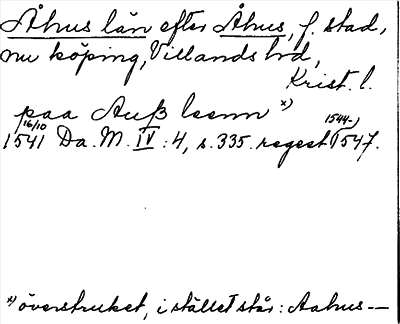 Åhus län efter Åhus, f. stad,
nu köping, Villands hrd,
Krist. l.
paa Auß leenn x)
16/10 1541 Da. M. IV : 4, s. 335. regest 1544-1547.
x) överstruket, i stället står: Aahus—